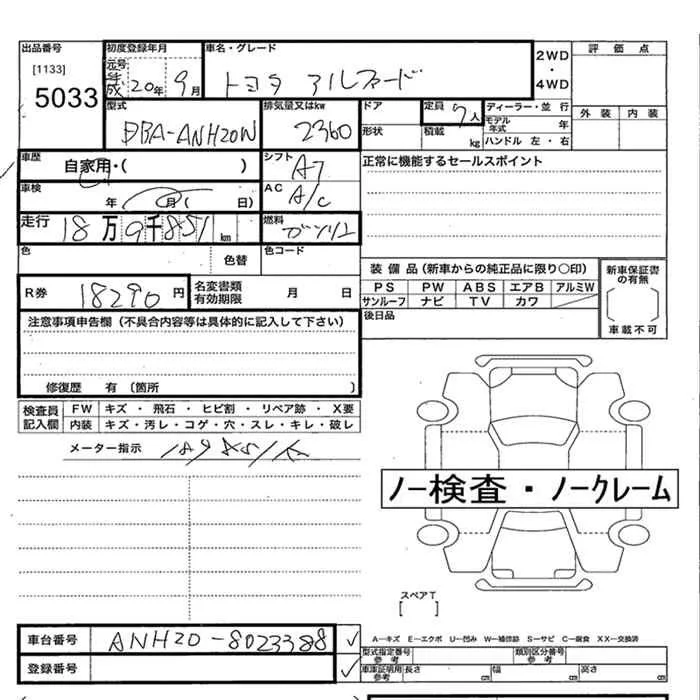 出品番号 初度登録年月 車名・グレード 2WD・4WD 評価点
[1133] 元号 平成 20年 9月 トヨタ アルファード
5033
型式 排気量又はkw ドア 定員 7人 ディーラー・並行 外装 内装
DBA-ANH20W 2360 形状 積載 kg モデル年式 年
ハンドル 左・右
車歴 自家用・( ) シフト A7 正常に機能するセールスポイント
車検 年 月( 日) AC A/C
走行 18万9千851km 燃料 ガソリン
色 色替 色コード
装備品(新車からの純正品に限り○印) 新車保証書の有無
PS PW ABS エアB アルミW
サンルーフ ナビ TV カワ
車載不可
R券 18290円 名変書類有効期限 月 日 後日品
注意事項申告欄(不具合内容等は具体的に記入して下さい)
修復歴 有 〔箇所 〕
検査員記入欄 FW キズ・飛石・ヒビ割・リペア跡・X要
内装 キズ・汚レ・コゲ・穴・スレ・キレ・破レ
メーター指示
ノー検査・ノークレーム
スペアT
[ ]
車台番号 ANH20-8023388 ✓
A―キズ E―エクボ U―凹み W―補修跡 S―サビ C―腐食 XX―交換済
登録番号 ✓
型式指定番号 参考 類別区分番号 参考
車庫証明用 参考 長さ cm 幅 cm 高さ cm